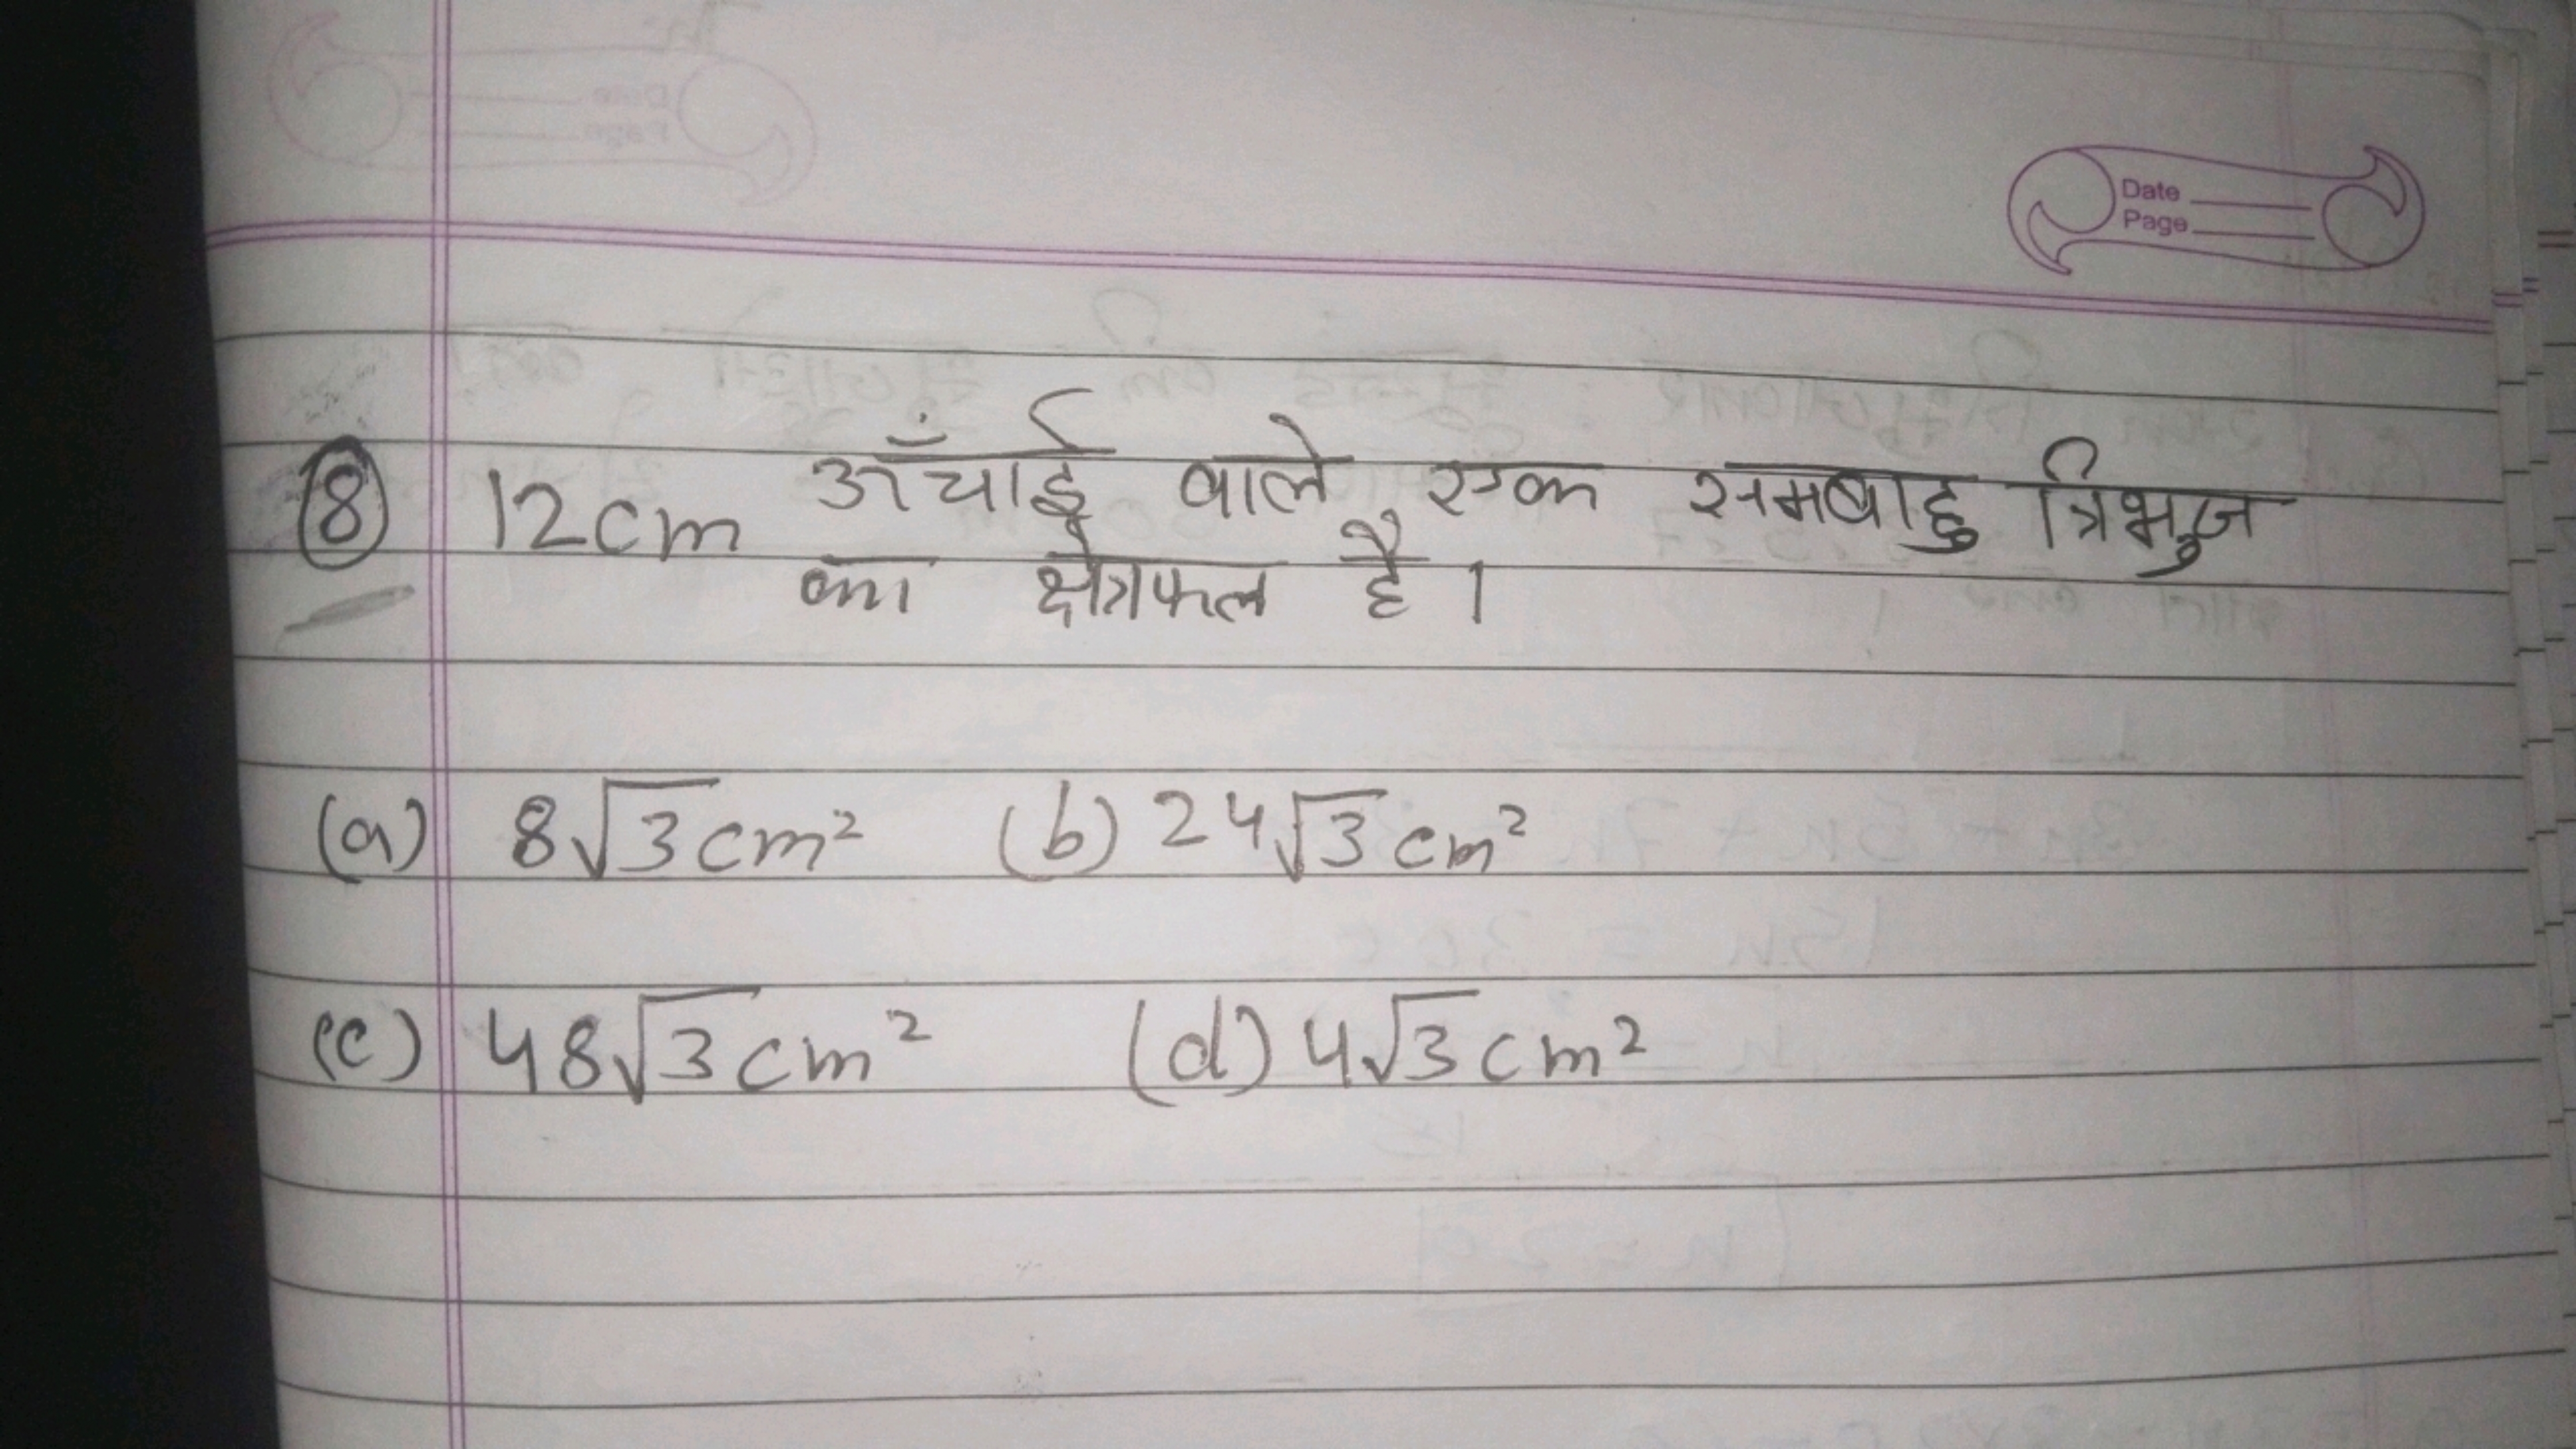 Date
Page
8 12cm ऊँचाई वाले एक समबाहु त्रिभुज
का क्षेत्रफल है ।
(a) 8√3cm² (b) 24√3cm²
(c) 48√3cm² (d) 4√3cm²